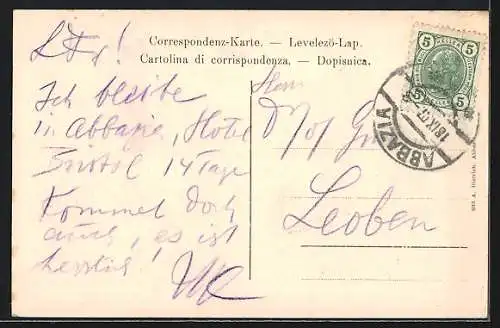 Correspondenz-Karte. — Levelező-Lap.
Cartolina di corrispondenza. — Dopisnica.
5 HELLER 5
5 5
ABBAZIA
18 IX 07
Ich bleibe
in Abbazia, Hotel
Bristol 14 Tage
Kommet doch
auch, es ist
herrlich!
Herrn
Leoben